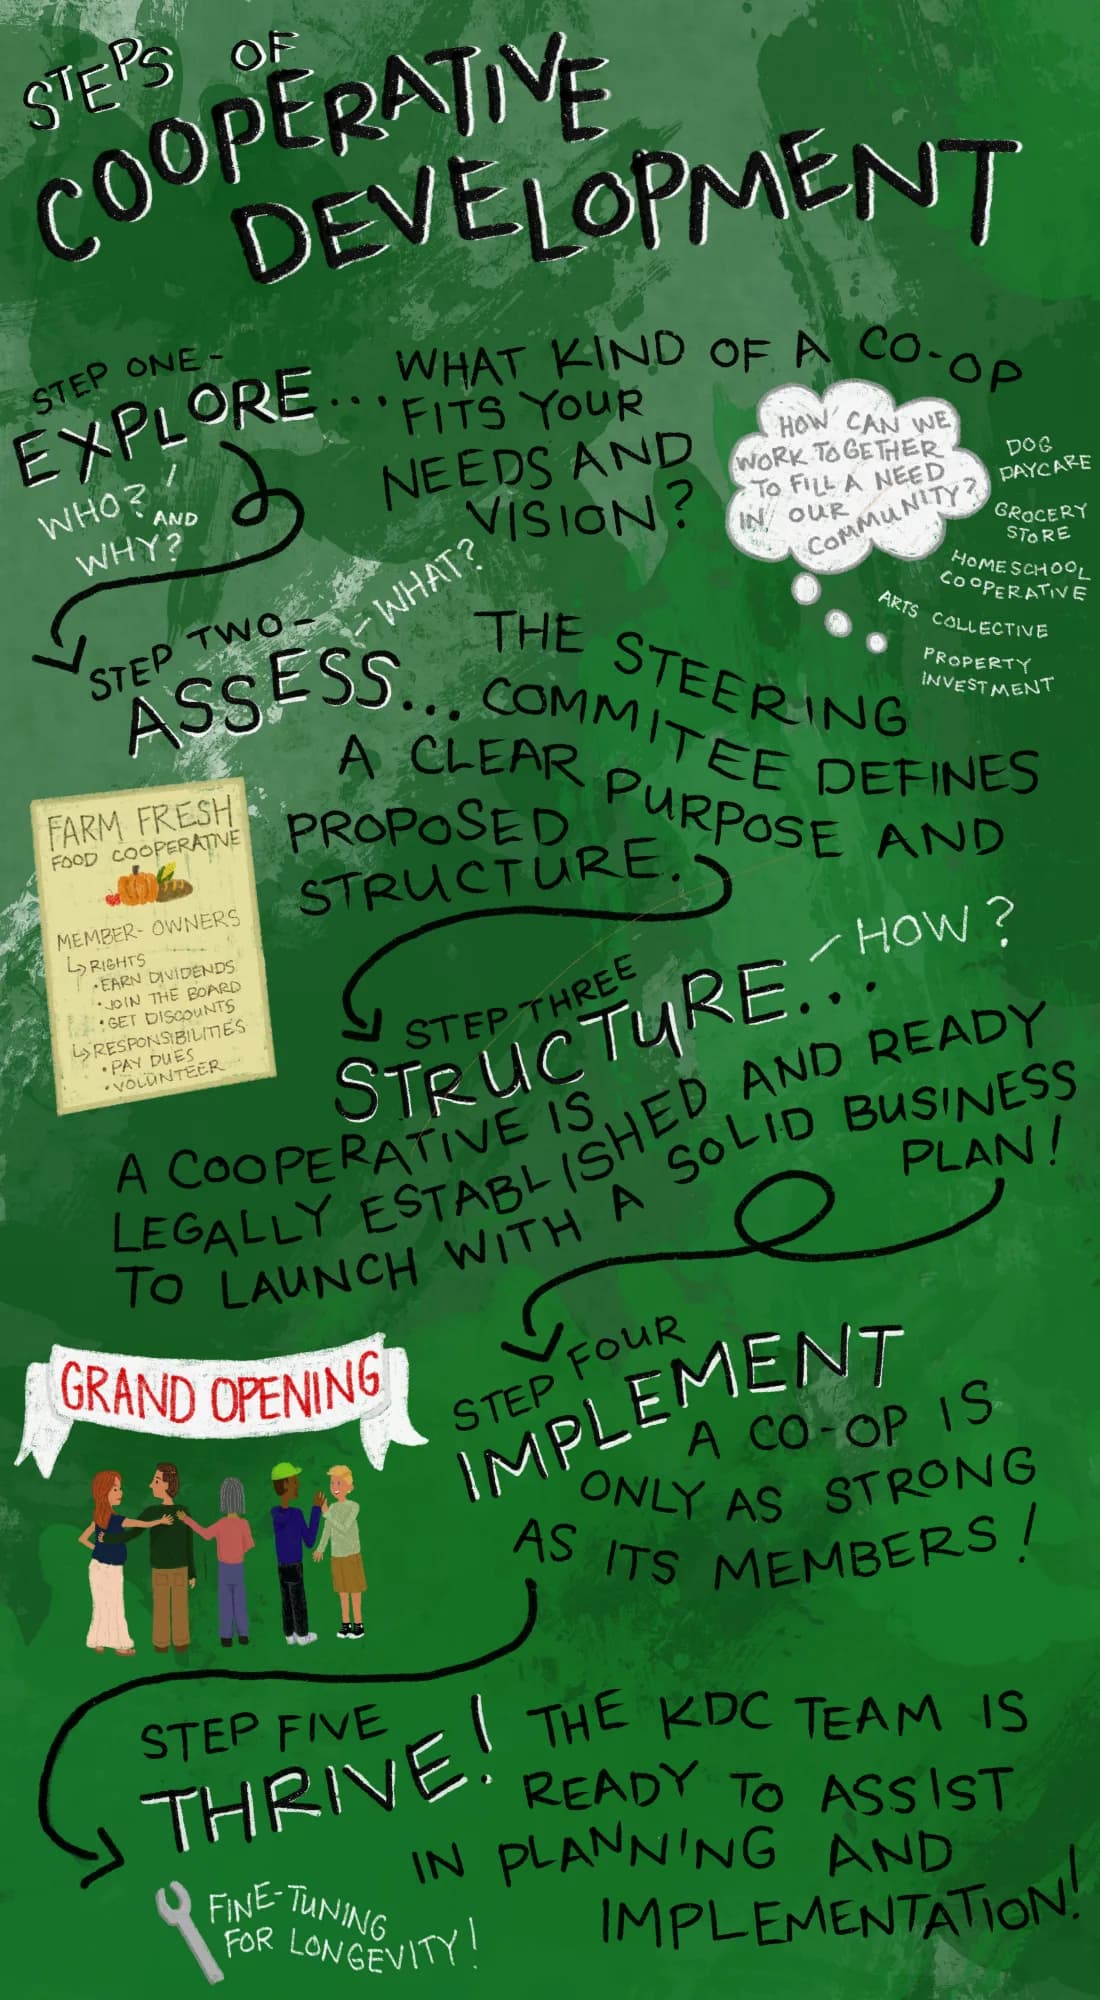 STEPS OF
COOPERATIVE
DEVELOPMENT
STEP ONE-
EXPLORE...
WHO? AND
WHY?
WHAT KIND OF A CO-OP
FITS YOUR
NEEDS AND
VISION?
HOW CAN WE
WORK TOGETHER
TO FILL A NEED
IN OUR
COMMUNITY?
DOG
DAYCARE
GROCERY
STORE
HOMESCHOOL
COOPERATIVE
ARTS COLLECTIVE
PROPERTY
INVESTMENT
STEP TWO-
ASSESS...
-WHAT?
THE STEERING
COMMITTEE DEFINES
A CLEAR PURPOSE AND
PROPOSED
STRUCTURE.
FARM FRESH
FOOD COOPERATIVE
MEMBER-OWNERS
RIGHTS
• EARN DIVIDENDS
• JOIN THE BOARD
• GET DISCOUNTS
RESPONSIBILITIES
• PAY DUES
• VOLUNTEER
STEP THREE
STRUCTURE...
-HOW?
A COOPERATIVE IS
LEGALLY ESTABLISHED AND READY
TO LAUNCH WITH A SOLID BUSINESS
PLAN!
GRAND OPENING
STEP FOUR
IMPLEMENT
A CO-OP IS
ONLY AS STRONG
AS ITS MEMBERS!
STEP FIVE
THRIVE!
THE KDC TEAM IS
READY TO ASSIST
IN PLANNING AND
IMPLEMENTATION!
FINE-TUNING
FOR LONGEVITY!